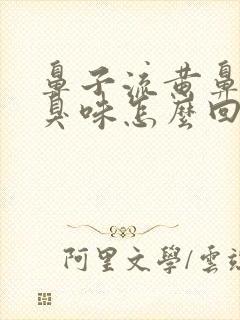 鼻子流黄鼻
臭味怎麼回
阿里文學/雲